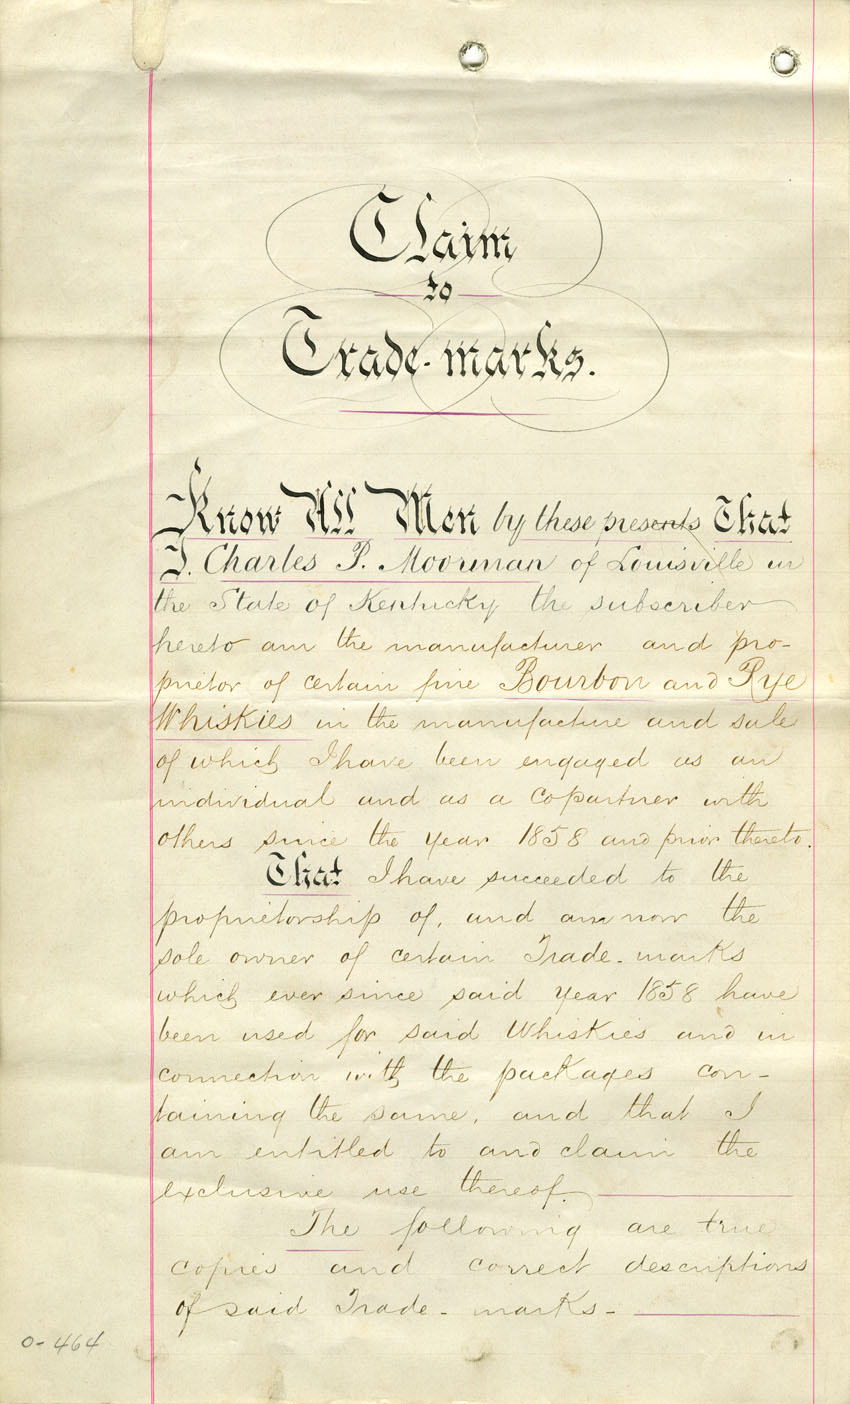 Claim
to
Trade-marks.
Know All Men by these presents That
I. Charles P. Moorman of Louisville in
the State of Kentucky the subscriber
hereto am the manufacturer and pro-
prietor of certain fine Bourbon and Rye
Whiskies in the manufacture and sale
of which I have been engaged as an
individual and as a copartner with
others since the year 1858 and prior thereto.
That I have succeeded to the
proprietorship of, and am now the
sole owner of certain Trade-marks
which ever since said year 1858 have
been used for said Whiskies and in
connection with the packages con-
taining the same, and that I
am entitled to and claim the
exclusive use thereof.
The following are true
copies and correct descriptions
of said Trade-marks-
O-464